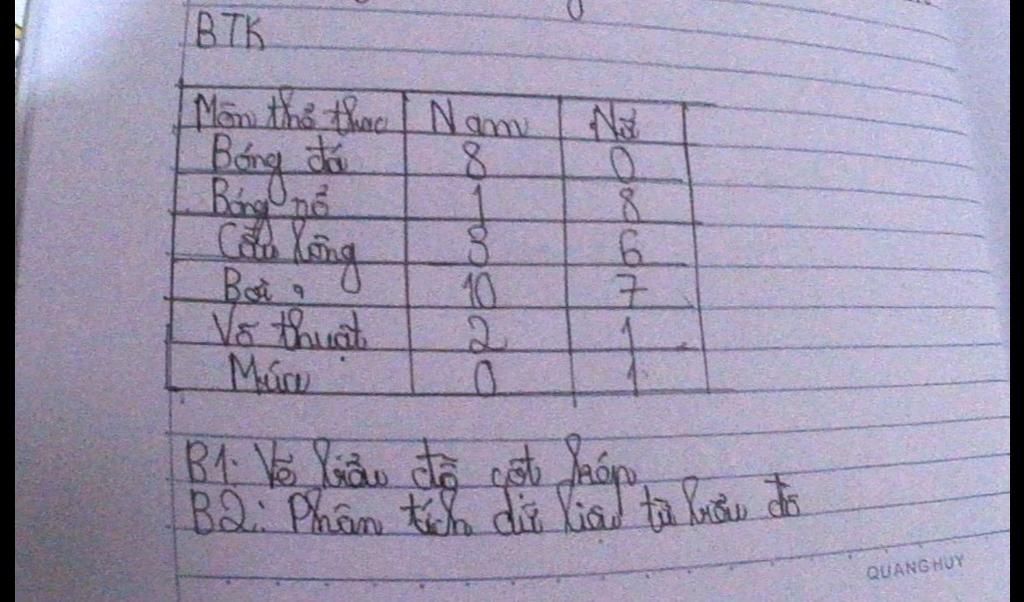 BTK
Môn thể thao Nam Nữ
Bóng đá 8 0
Bóng rổ 1 8
Cầu lông 3 6
Bơi 10 7
Võ thuật 2 1
Múa 0 1
B1: Vẽ biểu đồ cột kép
B2: Phân tích dữ liệu từ biểu đồ
QUANG HUY